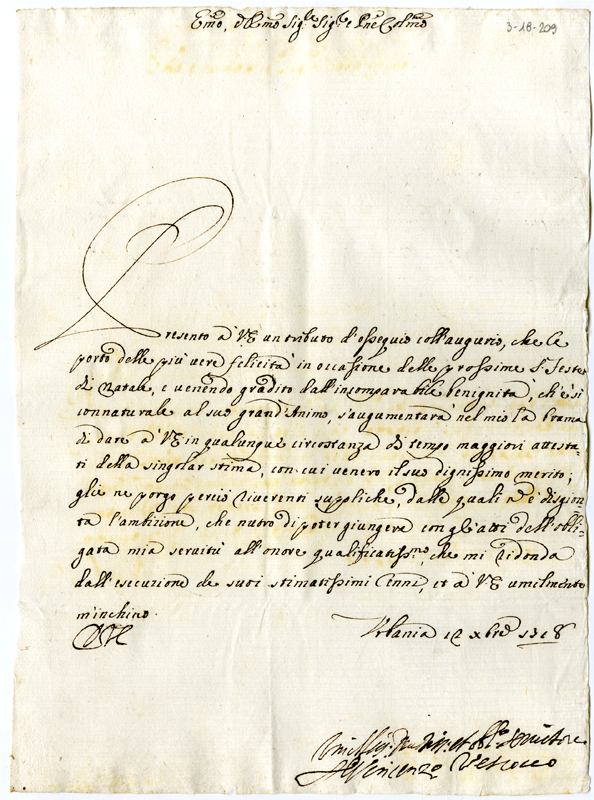 Em̃o, e Rm̃o Sig.re Sig.re e Pñe Colm̃o
3-18-209
Presento à V.E. un tributo d'ossequio coll'augurio, che le
porto delle più vere felicità in occasione delle prossime S.te Feste
di Natale, e venendo gradito dall'incomparabile benignità, ch'è sì
connaturale al suo grand'Animo, s'augumentarà nel mio la brama
di dare à V.E. in qualunque circostanza di tempo maggiori attesta-
ti della singolar stima, con cui venero il suo dignissimo merito;
glie ne porgo perciò riverenti suppliche, dalle quali non è disgion-
ta l'ambizione, che nutro di poter giungere con gl'atti dell'obli-
gata mia servitù all'onore qualificatiss.mo, che mi ridonda
dall'esecuzione de suoi stimatissimi Cenni, et à V.E. umilmente
m'inchino.
D.V.E.
Urbania 12 Xbre 1718
Umiliss. et Obl.o Servitore
Vincenzo